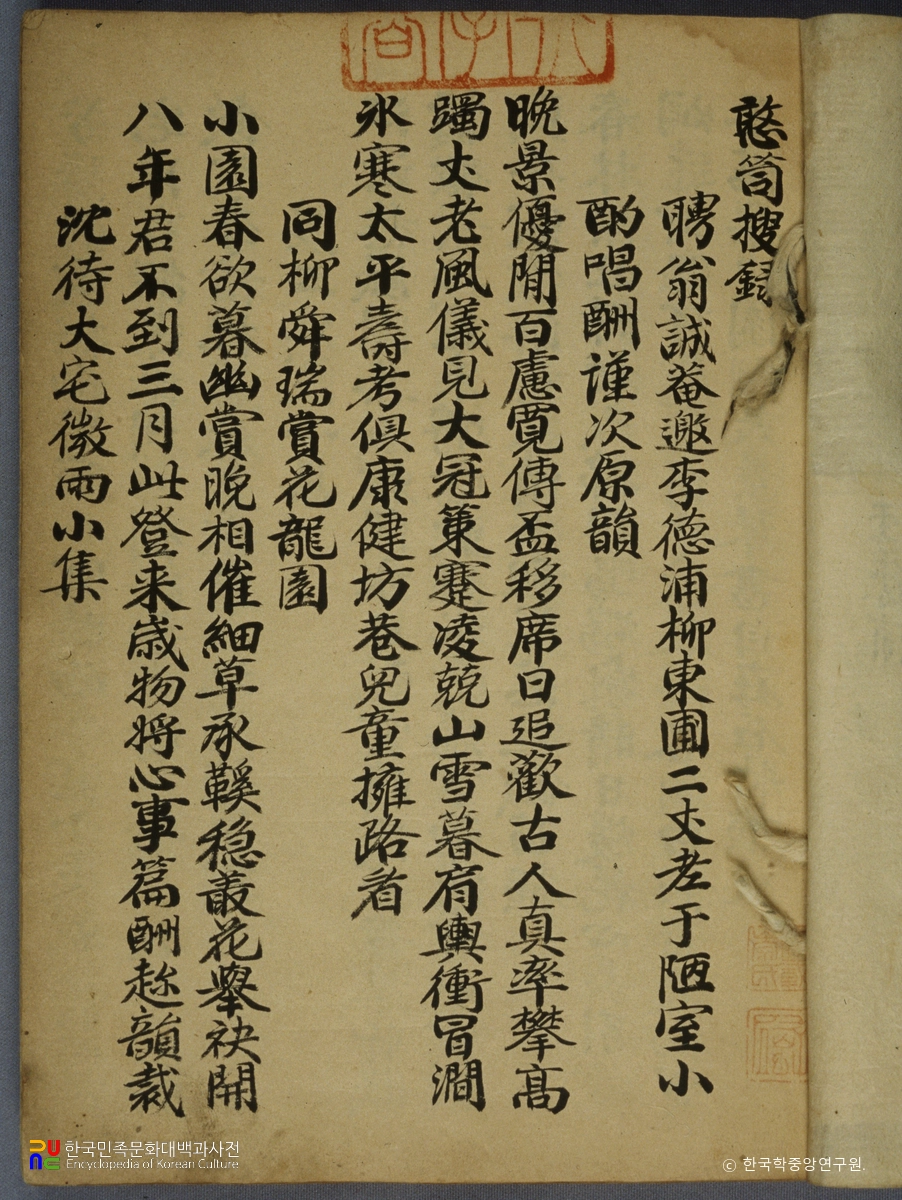 憨笥搜錄
聘翁誠菴邀李德浦柳東圃二丈老于陋室小
酌唱酬謹次原韻
晩景優閒百慮寛傳盃移席日追歡古人真率攀髙
躅丈老風儀見大冠策蹇凌兢山雪暮肩輿衝冒澗
氷寒太平壽考俱康健坊巷兒童擁路看
同柳舜瑞賞花龍園
小園春欲暮幽賞晩相催細草承鞵穏叢花舉袂開
八年君不到三月此登来歳物将心事篇酬趂韻裁
沈待大宅微雨小集
한국민족문화대백과사전
Encyclopedia of Korean Culture
ⓒ 한국학중앙연구원.